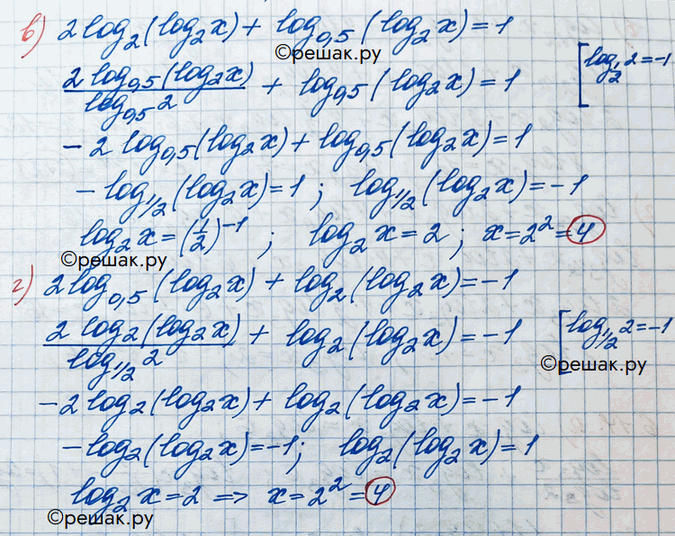 в) 2 log₂(log₂x) + log₀,₅(log₂x) = 1
©решак.ру
2 log₀,₅(log₂x) / log₀,₅2 + log₀,₅(log₂x) = 1 [log½2 = -1
- 2 log₀,₅(log₂x) + log₀,₅(log₂x) = 1
- log₁/₂(log₂x) = 1 ; log₁/₂(log₂x) = -1
log₂x = (1/2)⁻¹ ; log₂x = 2 ; x = 2² = 4
©решак.ру
г) 2 log₀,₅(log₂x) + log₂(log₂x) = -1
2 log₂(log₂x) / log₁/₂2 + log₂(log₂x) = -1 [log₁/₂2 = -1
©решак.ру
-2 log₂(log₂x) + log₂(log₂x) = -1
- log₂(log₂x) = -1; log₂(log₂x) = 1
log₂x = 2 => x = 2² = 4
©решак.ру